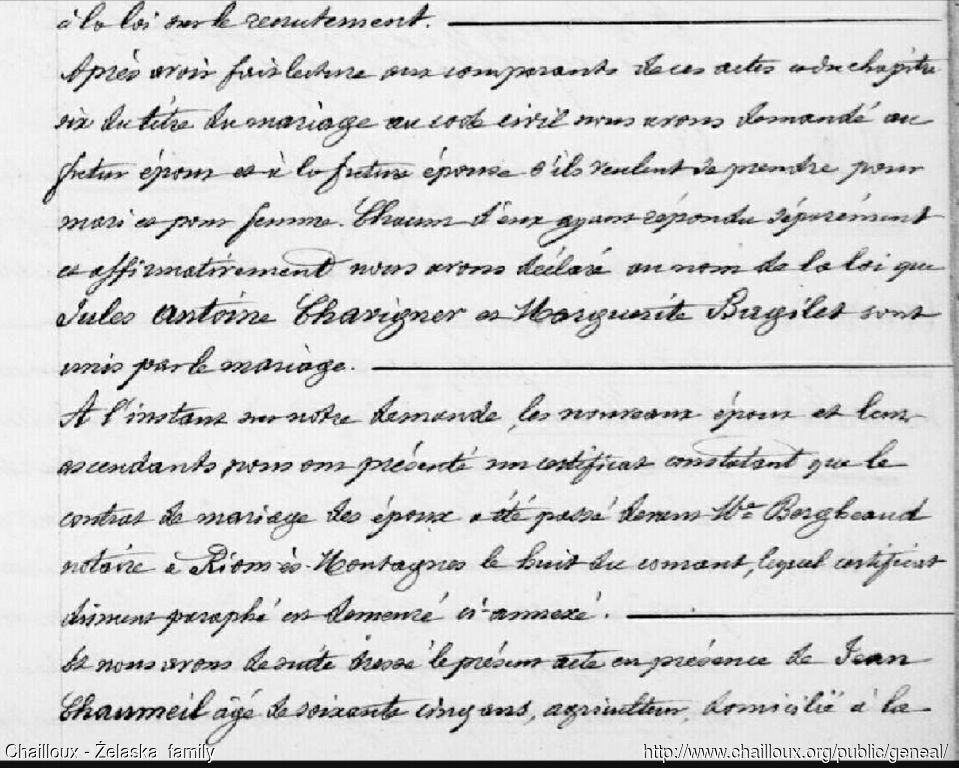 à la loi sur le recrutement.
Après avoir fait lecture aux comparants de ces actes et du chapitre
six du titre du mariage au code civil nous avons demandé au
futur époux et à la future épouse s'ils veulent se prendre pour
mari et pour femme. Chacun d'eux ayant répondu séparément
et affirmativement nous avons déclaré au nom de la loi que
Jules Antoine Chavigner et Marguerite Bugilet sont
unis par le mariage.
A l'instant sur notre demande, les nouveaux époux et leurs
ascendants nous ont présenté un certificat constatant que le
contrat de mariage des époux a été passé devant Me Bergheaud
notaire à Riom-ès-Montagnes le huit du courant, lequel certificat
dûment paraphé est demeuré ci-annexé.
Et nous avons de suite dressé le présent acte en présence de Jean
Chaumeil âgé de soixante cinq ans, agriculteur, domicilié à la
Chailloux - Żelaska family http://www.chailloux.org/public/geneal/